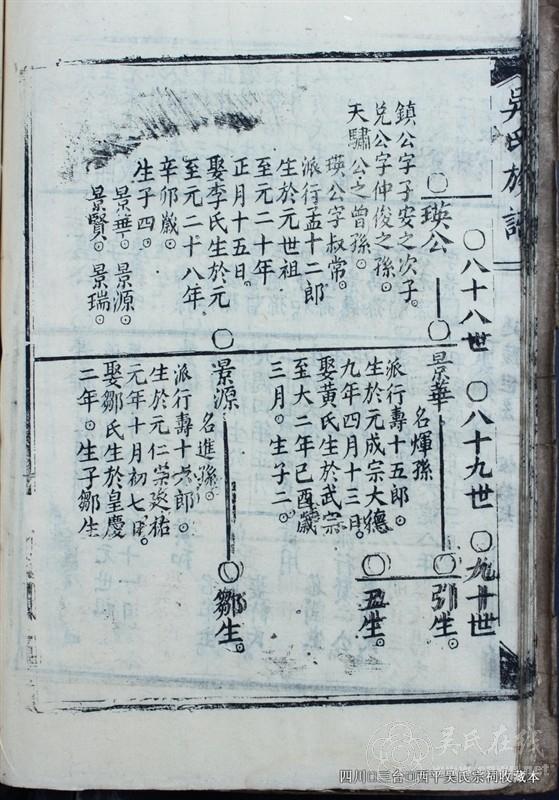 吳氏族譜
○八十八世 ○八十九世 ○九十世
○瑛公
鎮公字子安之次子。
兌公字仲俊之孫。
天驌公之曾孫。
瑛公字叔常。
派行孟十二郎
生於元世祖
至元二十年
正月十五日。
娶李氏生於元
至元二十八年
辛卯歲。
生子四。
景華。景源。
景賢。景瑞。
○景華
名煇孫
派行壽十五郎。
生於元成宗大德
九年四月十三日。
娶黃氏生於武宗
至大二年己酉歲
三月。生子二。
○引生。
○丑生。
○景源
名進孫。
派行壽十六郎。
生於元仁宗延祐
元年十月初七日。
娶鄒氏生於皇慶
二年。生子鄒生
○鄒生。
吴氏在线
四川□三台□西平吴氏宗祠收藏本